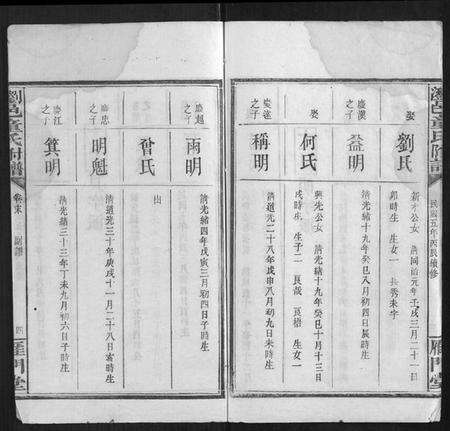 瀏邑童氏附譜
民國五年丙辰續修
雁門堂
娶
劉氏
新才公女 清同治元年壬戌三月二十一日
卯時生 生女一 長秀未字
慶漢之子
益明
清光緒十九年癸巳八月初四日辰時生
娶
何氏
興光公女 清光緒十九年癸巳十月十三日
戌時生 生子二 良 良 生女一
慶遂之子
稱明
清道光二十八年戊申八月初九日未時生
慶超之子
雨明
清光緒四年戊寅三月初四日子時生
曾氏
慶忠之子
明魁
清道光三十年庚戌十一月二十八日寅時生
慶江之子
箕明
清光緒三十三年丁未九月初六日子時生
瀏邑童氏附譜
卷末
副譜
四
雁門堂